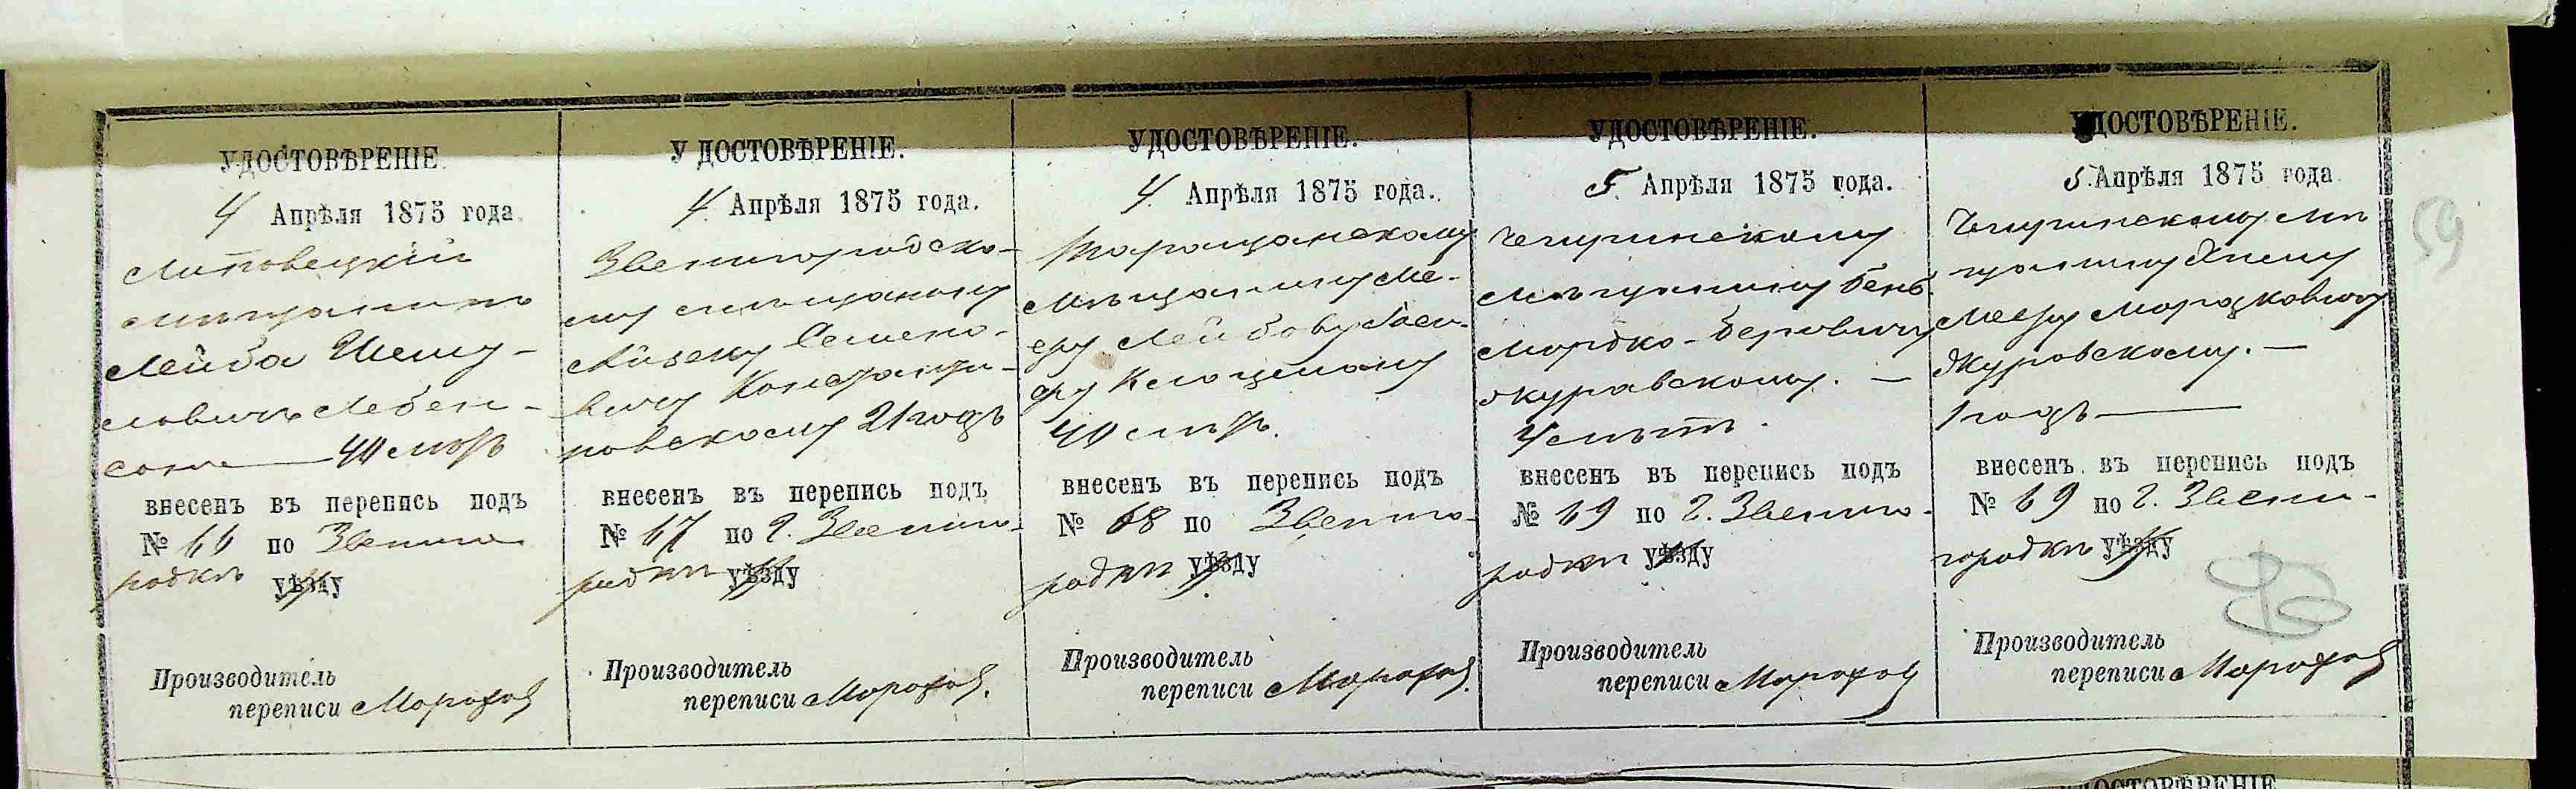 УДОСТОВѢРЕНІЕ.
4 Апрѣля 1875 года.
Липовецкій
мѣщанинъ
Лейба Шему-
ловичъ Лебен-
сонъ — 40 лѣтъ
внесенъ въ перепись подъ
№ 66 по Звениго
родкѣ уѣзду
Производитель
переписи Морозов
УДОСТОВѢРЕНІЕ.
4 Апрѣля 1875 года.
Звенигородско-
му мѣщанину
Айзеку Семено-
вичу Константи-
новскому 21 годъ
внесенъ въ перепись подъ
№ 67 по г. Звениго-
родкѣ уѣзду
Производитель
переписи Морозов.
УДОСТОВѢРЕНІЕ.
4 Апрѣля 1875 года.
Таращанскому
мѣщанину Ме-
еру Лейбову
40 лѣтъ.
внесенъ въ перепись подъ
№ 68 по Звениго-
родкѣ уѣзду
Производитель
переписи Морозов.
УДОСТОВѢРЕНІЕ.
5. Апрѣля 1875 года.
Чегиринскому
мѣщанину Бень
Мордко-Беровичу
Журавскому. —
4 лѣтъ.
внесенъ въ перепись подъ
№ 69 по г. Звениго-
родкѣ уѣзду
Производитель
переписи Морозов
УДОСТОВѢРЕНІЕ.
5. Апрѣля 1875 года
Чегиринскому мѣ
щанину
Мееру Мордковичу
Журовскому. —
1 годъ —
внесенъ въ перепись подъ
№ 69 по г. Звени-
городкѣ уѣзду
Производитель
переписи Морозов
59